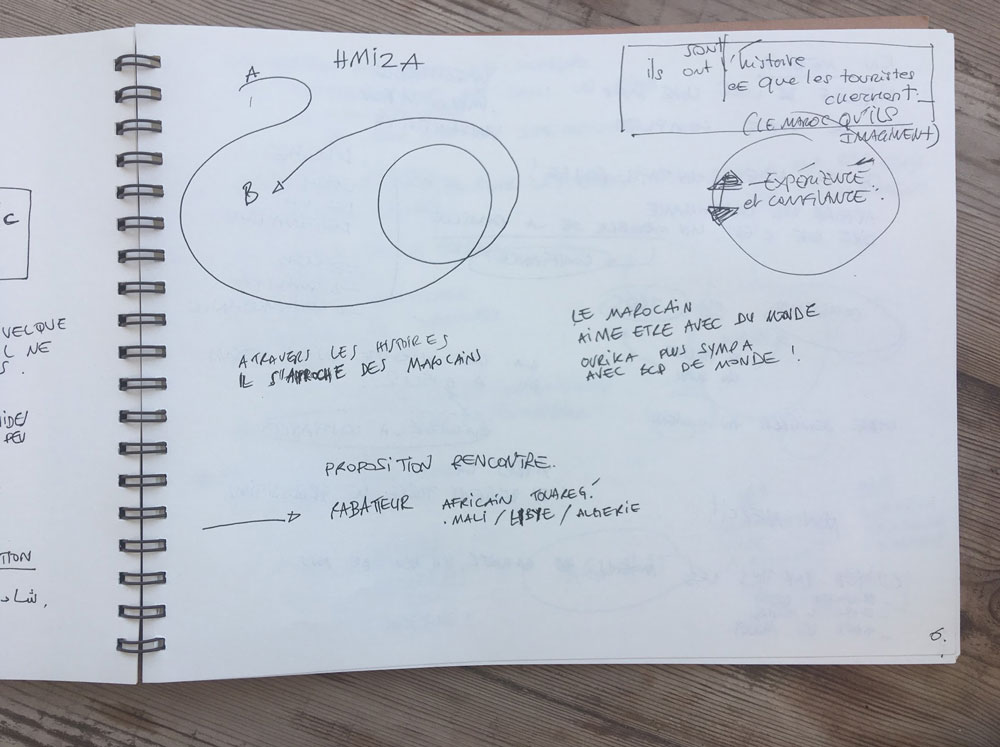 C
VELQUE
L NE
S.
IDE/
PEU
TION
HMIZA
A
B
SONT
ils ont l'histoire
ce que les touristes
cherchent.
(LE MAROC QU'ILS
IMAGINENT)
EXPÉRIENCE
et CONFIANCE.
A TRAVERS LES HISTOIRES
IL S'APPROCHE DES MAROCAINS
LE MAROCAIN
AIME ETRE AVEC DU MONDE
OURIKA PLUS SYMPA
AVEC BCP DE MONDE !
PROPOSITION RENCONTRE.
RABATTEUR AFRICAIN TOUAREG.
. MALI / LIBYE / ALGERIE
6.